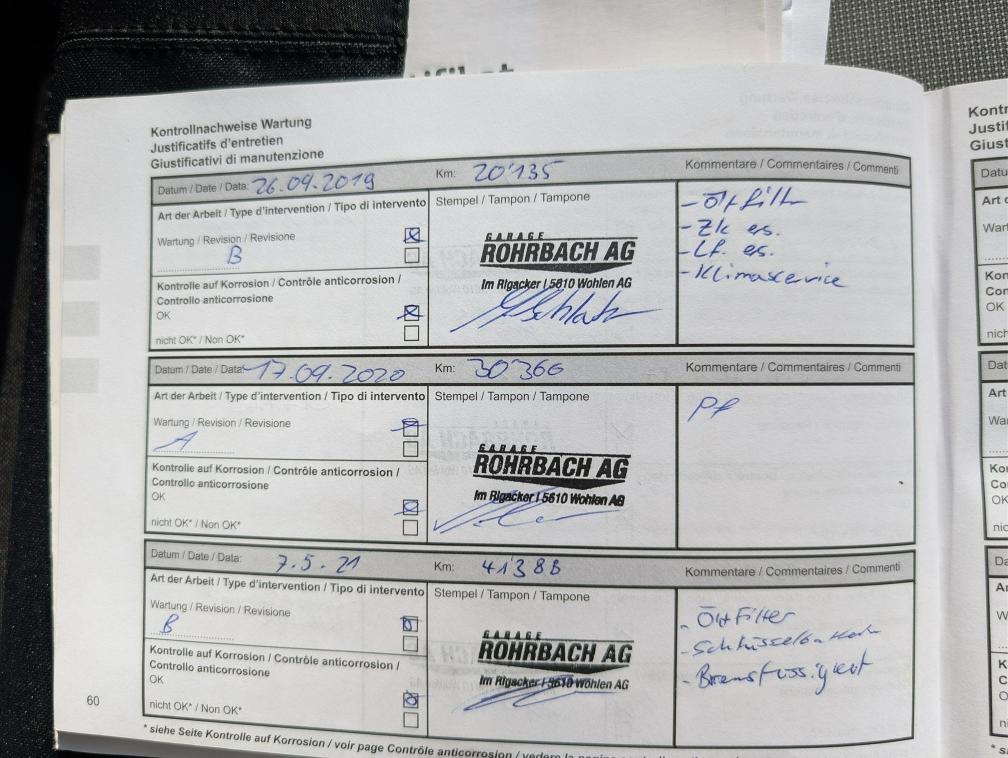 Kontrollnachweise Wartung
Justificatifs d'entretien
Giustificativi di manutenzione
Datum / Date / Data: 26.09.2019 Km: 20'135 Kommentare / Commentaires / Commenti
Art der Arbeit / Type d'intervention / Tipo di intervento Stempel / Tampon / Tampone
Wartung / Revision / Revisione
B
Kontrolle auf Korrosion / Contrôle anticorrosion /
Controllo anticorrosione
OK
nicht OK* / Non OK*
GARAGE
ROHRBACH AG
Im Rigacker | 5610 Wohlen AG
- Zk ers.
- Lf. ers.
- Klimaservice
Datum / Date / Data: 17.09.2020 Km: 30'366 Kommentare / Commentaires / Commenti
Art der Arbeit / Type d'intervention / Tipo di intervento Stempel / Tampon / Tampone
Wartung / Revision / Revisione
A
Kontrolle auf Korrosion / Contrôle anticorrosion /
Controllo anticorrosione
OK
nicht OK* / Non OK*
GARAGE
ROHRBACH AG
Im Rigacker | 5610 Wohlen AG
Pf
Datum / Date / Data: 7.5.21 Km: 41'388 Kommentare / Commentaires / Commenti
Art der Arbeit / Type d'intervention / Tipo di intervento Stempel / Tampon / Tampone
Wartung / Revision / Revisione
B
Kontrolle auf Korrosion / Contrôle anticorrosion /
Controllo anticorrosione
OK
nicht OK* / Non OK*
GARAGE
ROHRBACH AG
Im Rigacker | 5610 Wohlen AG
- Öl+Filter
60
* siehe Seite Kontrolle auf Korrosion / voir page Contrôle anticorrosion / vedere la pagina